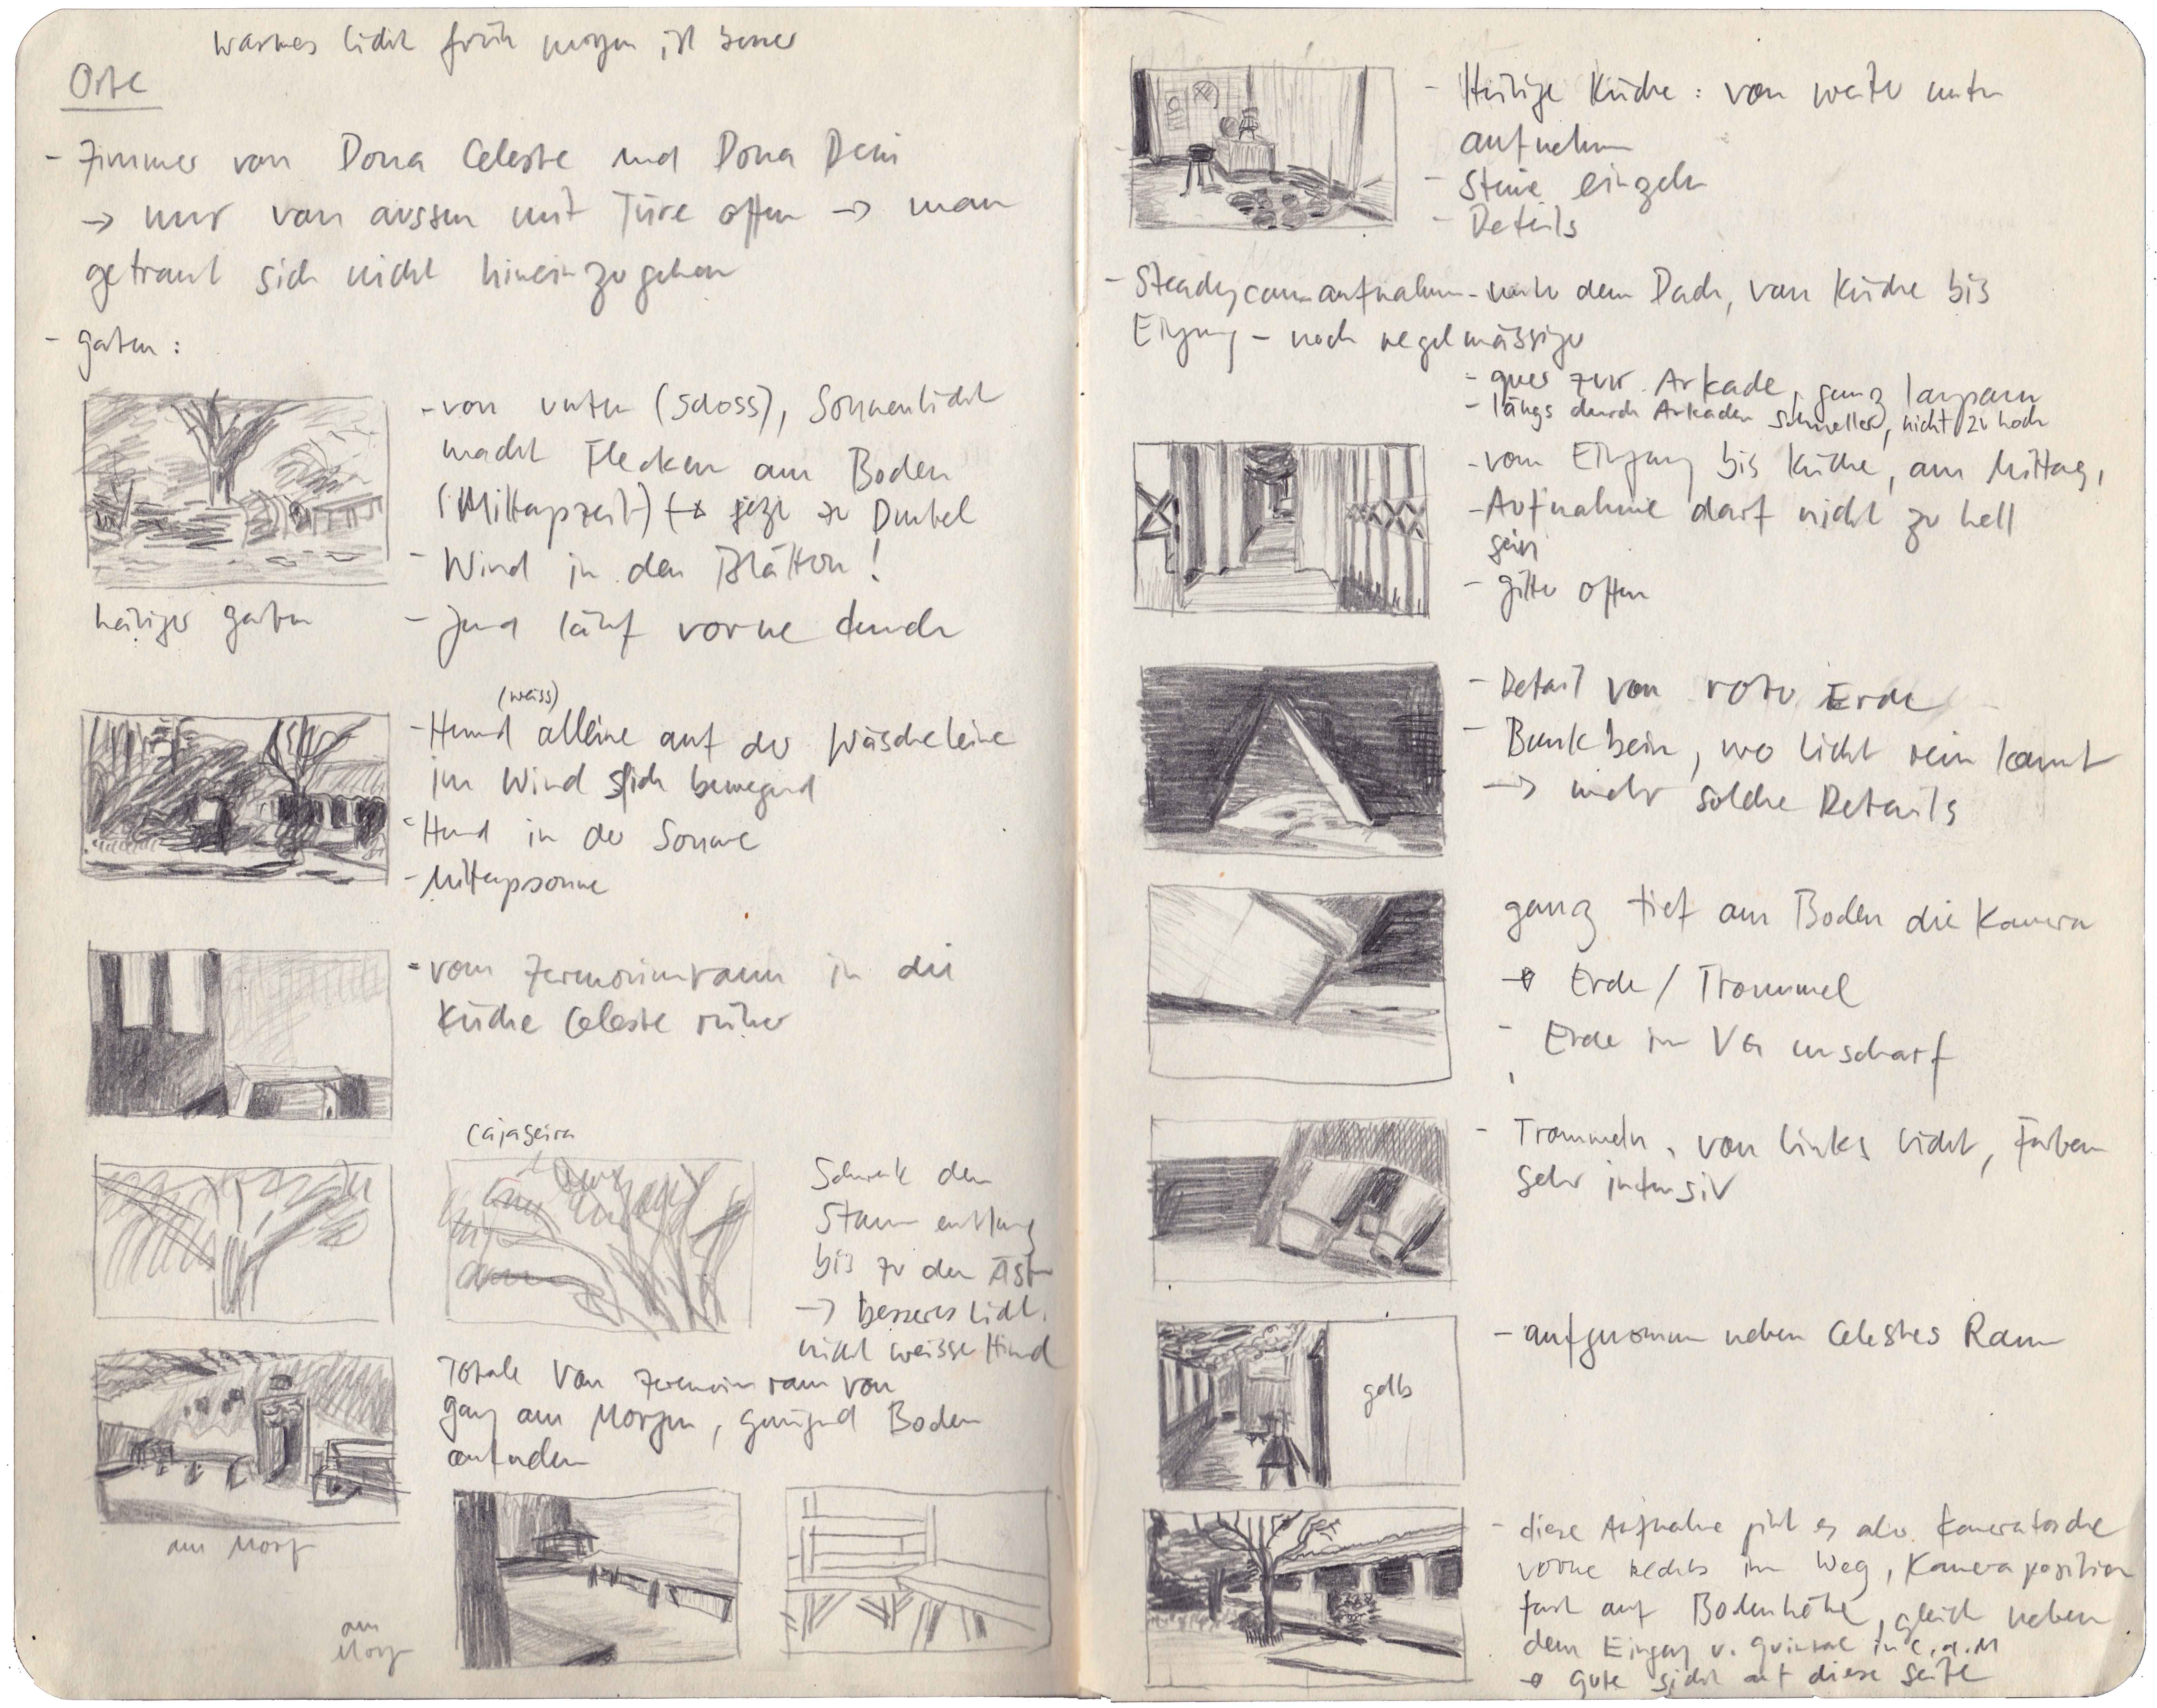 warmes Licht früh morgen ist besser
Orte
- Zimmer von Dona Celeste und Dona Deni
→ nur von aussen mit Türe offen → man
getraut sich nicht hineinzugehen
- Garten:
- von unten (Schoss), Sonnenlicht
macht Flecken am Boden
(Mittagszeit) jetzt zu Dunkel
- Wind in den Blättern!
- Jmd läuft vorne durch
heiliger Garten
(weiss)
- Hemd alleine auf der Wäscheleine
im Wind sich bewegend
- Hemd in der Sonne
- Mittagssonne
- vom Zeremonienraum in die
Küche Celeste
Cajaseira
Schwenk dem
Stamm entlang
bis zu den Ästen
→ besseres Licht.
nicht weisse Hemd
Totale von Zeremonienraum von
ganz am Morgen, genügend Boden
aufnehmen
am Morg
am
Morg
- Heilige Küche: von weiter unten
aufnehmen
- Steine einzeln
- Details
- Steadycamaufnahmen - unter dem Dach, von Küche bis
Eingang - noch regelmässiger
- quer zur Arkade, ganz langsam
- längs durch Arkaden schneller, nicht zu hoch
- vom Eingang bis Küche, am Mittag,
- Aufnahme darf nicht zu hell
sein
- Gitter offen
- Detail von roter Erde
- Bankbein, wo Licht rein kommt
→ mehr solche Details
ganz tief am Boden die Kamera
→ Erde / Trommel
- Erde im VG unscharf
- Trommeln, von links Licht, Farben
sehr intensiv
gelb
- aufgenommen neben Celestes Raum
- diese Aufnahme gibt es aber Kameratasche
vorne rechts im Weg, Kameraposition
fast auf Bodenhöhe, gleich neben
dem Eingang v. Quintal in C.d.M
→ gute Sicht auf diese Seite